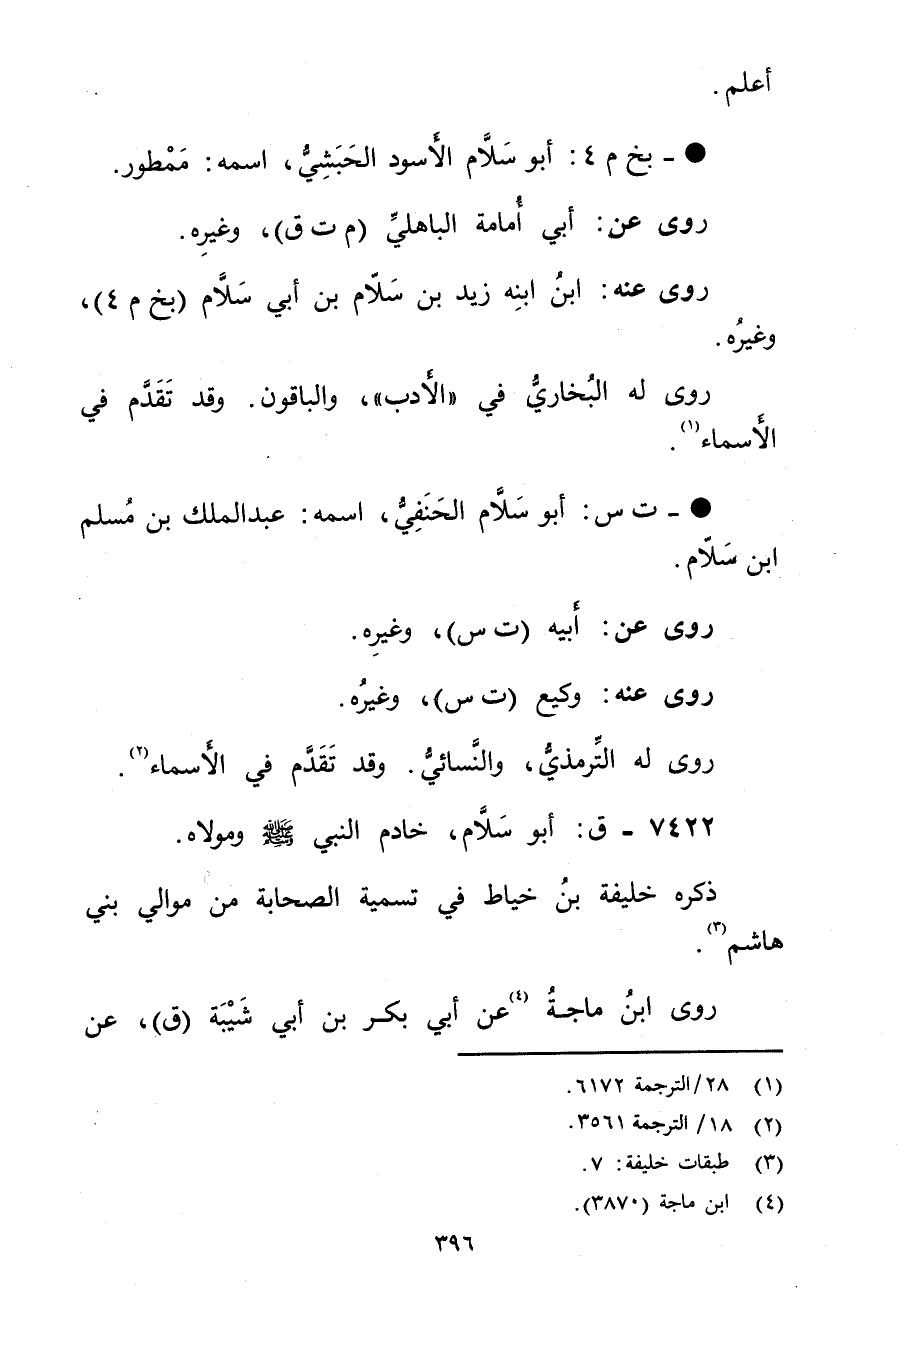 أعلم.
● ـ بخ م ٤: أبو سَلَّام الأَسود الحَبَشِيُّ، اسمه: مَمْطور.
روى عن: أبي أُمامة الباهليِّ (م ت ق)، وغيرِه.
روى عنه: ابنُ ابنِه زيد بن سَلّام بن أبي سَلَّام (بخ م ٤)،
وغيرُه.
روى له البُخاريُّ في «الأَدب»، والباقون. وقد تَقَدَّم في
الأَسماء(١).
● ـ ت س: أبو سَلَّام الحَنَفِيُّ، اسمه: عبدالملك بن مُسلم
ابن سَلّام.
روى عن: أَبيه (ت س)، وغيرِه.
روى عنه: وكيع (ت س)، وغيرُه.
روى له التِّرمذيُّ، والنَّسائيُّ. وقد تَقَدَّم في الأَسماء(٢).
٧٤٢٢ ـ ق: أبو سَلَّام، خادم النبي ﷺ ومولاه.
ذكره خليفة بنُ خياط في تسمية الصحابة من موالي بني
هاشم(٣).
روى ابنُ ماجـةُ (٤)عن أبي بكـر بن أبي شَيْبَة (ق)، عن
(١) ٢٨/الترجمة ٦١٧٢.
(٢) ١٨/ الترجمة ٣٥٦١.
(٣) طبقات خليفة: ٧.
(٤) ابن ماجة (٣٨٧٠).
٣٩٦